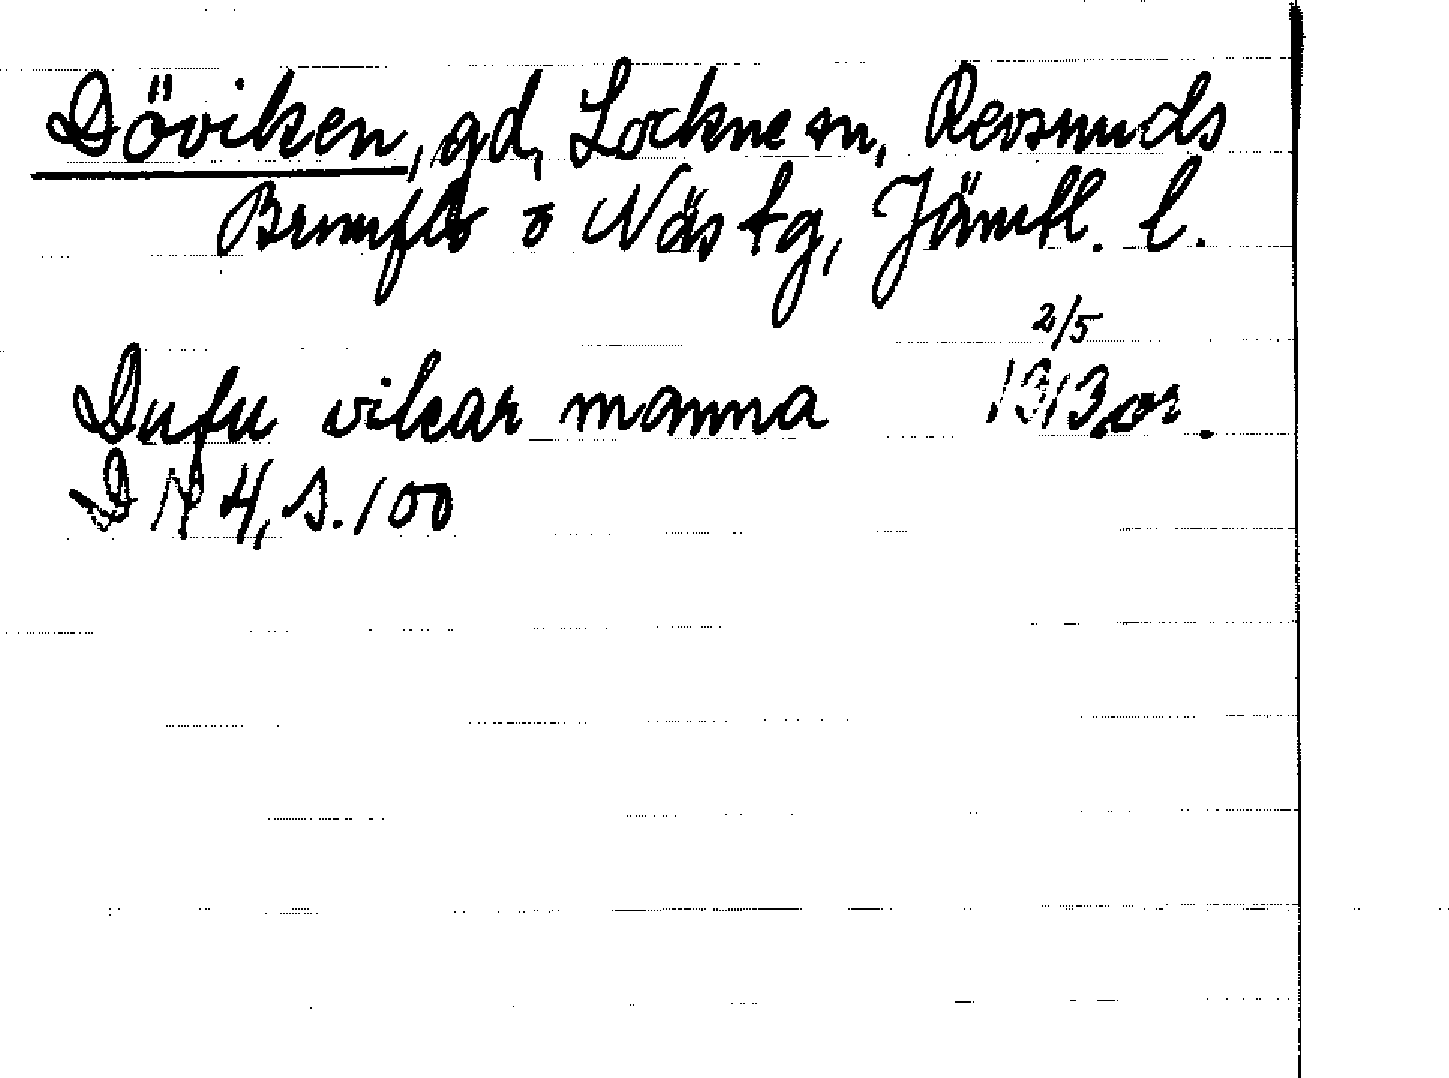 Döviken, gd, Lockne sn, Revsunds
Brunflo o Näs tg, Jämtl. l.
2/5
Dufu vikar manna 1313 or.
DN 4, s. 100